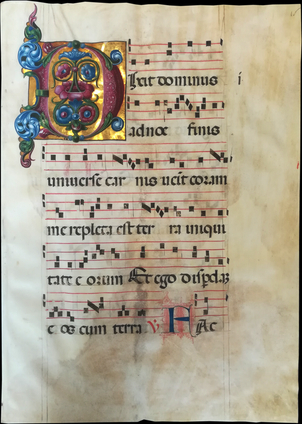 Dixit dominus
ad noe finis
universe carnis venit coram
me repleta est terra iniqui
tate eorum Et ego disperdam
eos cum terra V Fac